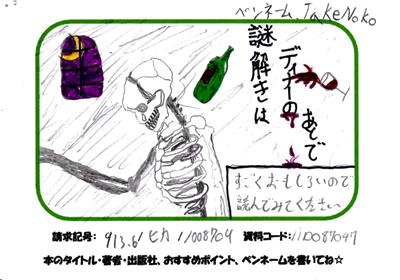 ペンネーム、TakeNoko
謎解きは
ディナーの
あとで
すごくおもしろいので
読んでみてください
請求記号: 913.6 ヒガ 11008704 資料コード:
本のタイトル・著者・出版社、おすすめポイント、ペンネームを書いてね☆